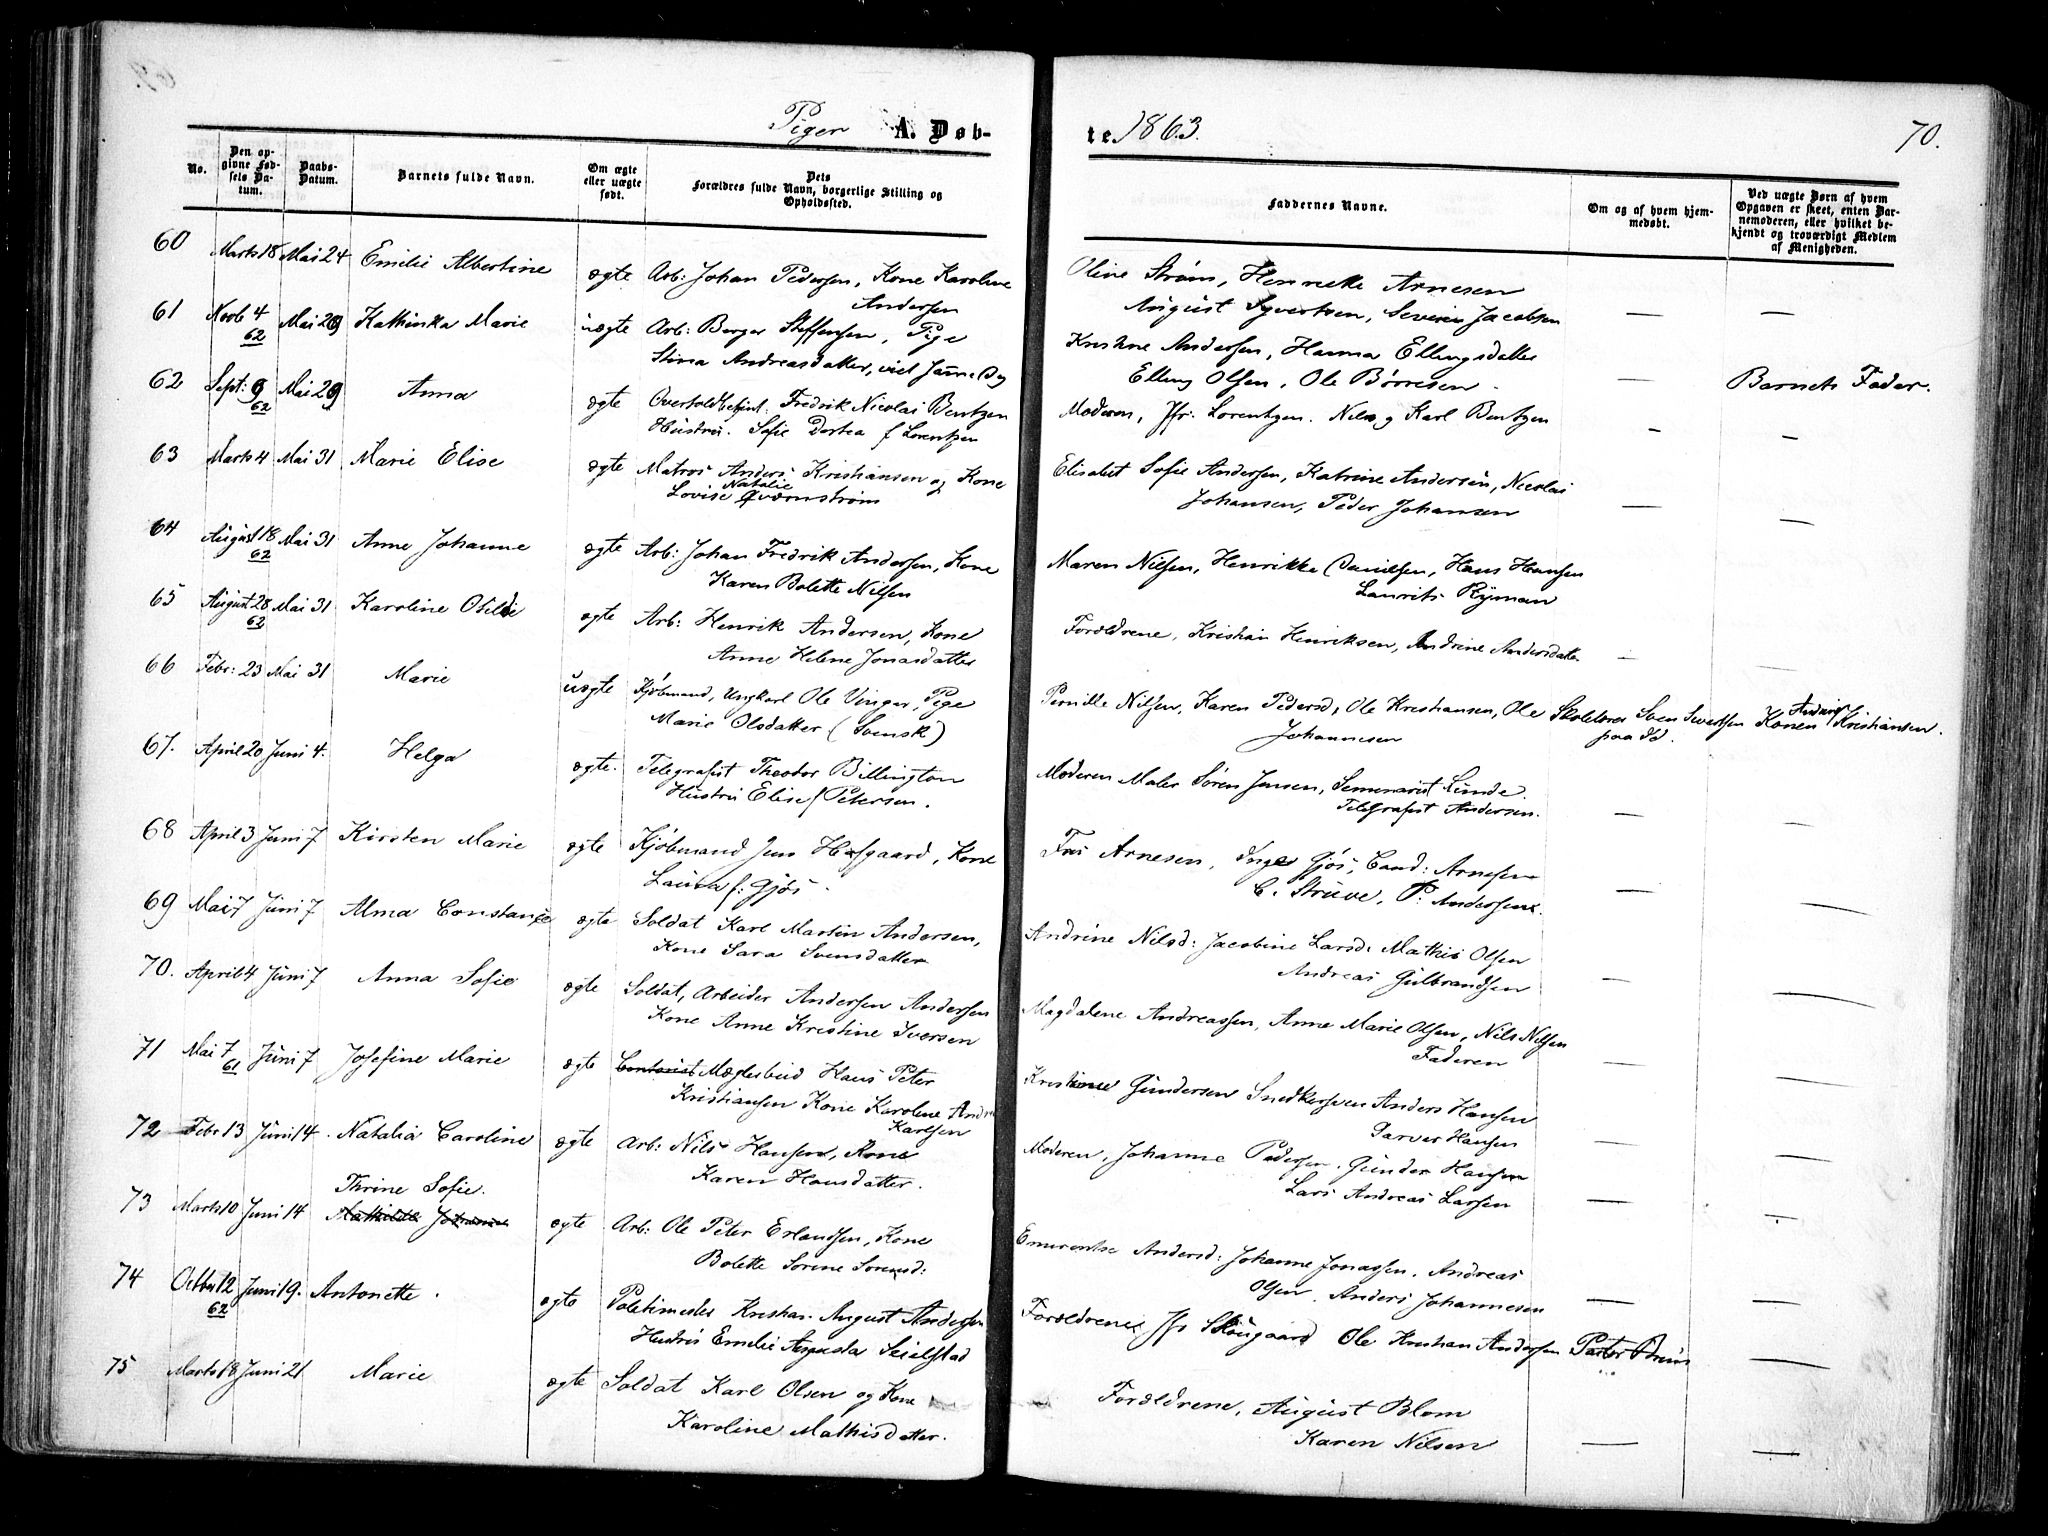 Piger A. Døb-
te 1863.
70.
No.
Den op-
givne Fød-
sels Da-
tum.
Daabs-
Datum.
Barnets fulde Navn.
Om ægte
eller uægte
født.
Dets
Forældres fulde Navn, borgerlige Stilling og
Opholdssted.
Faddernes Navne.
Om og af hvem hjem-
medøbt.
Ved uægte Børn af hvem
Opgaven er skeet, enten Bar-
nemoderen, eller hvilket be-
kjendt og troværdigt Medlem
af Menigheden.
60 Marts 18 Mai 24 Emilie Albertine ægte Arb: Johan Pedersen, Kone Karoline
Andersen
Oline Strøm, Henriette Arnesen
August Syvertsen, Severin Jacobsen — —
61 Novb 4 Mai 29 Kathinka Marie uægte Arb: Berger Steffensen, Pige
62
Stina Andreasdatter, viet Janne
Kristine Andersen, Hanna Ellingsdatter
Elling Olsen, Ole Børresen - Barnets Fader.
62 Sept: 9 Mai 29 Anna ægte Overtoldbetjent: Fredrik Nicolai Bentzen
62
Hustru. Sofie Dortea f Lorentzen
Moderen, Jfr: Lorentzen. Nils og Karl Bentzen — —
63 Marts 4 Mai 31 Marie Elise ægte Matros Anders Kristiansen og Kone
Natalie
Lovise Qvarnstrøm
Elisabet Sofie Andersen, Katrine Andersen, Nicolai
Johansen, Peder Johansen — —
64 August 18 Mai 31 Anne Johanne ægte Arb: Johan Fredrik Andersen, Kone
62
Karen Bolette Nilsen
Maren Nilsen, Henrikke Danielsen, Hans Hansen
Laurits Ryman
65 August 28 Mai 31. Karoline Otilde ægte Arb: Henrik Andersen, Kone
62
Anne Helene Jonasdatter
Forældrene, Kristian Henriksen, Andrine Andersdatter — —
66 Febr: 23 Mai 31 Marie uægte Kjøbmand, Ungkarl Ole Vinger, Pige
Marie Olsdatter (Svensk)
Pernille Nilsen, Karen Pedersd, Ole Kristiansen, Ole
Johannesen
Skolelærer Sven Sivertsen
paa Id.
Anders
Konen Kristiansen.
67. April 20 Juni 4. Helga ægte. Telegrafist Theodor Billington
Hustru Elise f Petersen.
Moderen Maler Søren Jensen, Seminarist Linde.
Telegrafist Andersen. — —
68 April 3 Juni 7 Kirsten Marie ægte Kjøbmand Jens Hafgaard, Kone
Laura f: Gjøs.
Fru Arnesen, Inger Gjøs, Cand: Arnesen
C. Struve, P. Andersen. — —
69 Mai 7 Juni 7 Alma Constance ægte Soldat Karl Martin Andersen,
Kone Sara Svensdatter
Andrine Nilsd: Jacobine Larsd: Mathis Olsen
Andreas Gulbrandsen — —
70. April 4 Juni 7 Anna Sofie ægte Soldat, Arbeider Andersen Andersen
Kone Anne Kristine Iversen
Magdalene Andreassen, Anne Marie Olsen, Nils Nilsen
Faderen — —
71 Mai 7 Juni 7 Josefine Marie ægte Contorist Mæglerbud Hans Peter
61
Kristiansen Kone Karoline Andr
Karlsen
Kristiane Gundersen Snedkersven Anders Hansen
Garver Hansen — —
72 Febr 13 Juni 14. Natalia Caroline ægte Arb: Nils Hansen, Kone
Karen Hansdatter.
Moderen, Johanne Pedersen. Gunder Hansen
Lars Andreas Larsen — —
Thrine Sofie.
73 Marts 10 Juni 14 Mathilde Johanne ægte Arb: Ole Peter Erlandsen, Kone
Bolette Sorine Sorensd:
Emerentse Andersd: Johanne Jonassen. Andreas
Olsen. Anders Johannesen — —
74 Octbr 12 Juni 19. Antonette. ægte Politimester Kristian August Andersen
62
Hustru Emilie Augusta Seielstad
Forældrene, Jfr Skougaard Ole Kristian Andersen Pastor Bruun —
75 Marts 18 Juni 21 Marie ægte Soldat Karl Olsen og Kone
Karoline Mathisdatter.
Forældrene, August Blom
Karen Nilsen — —